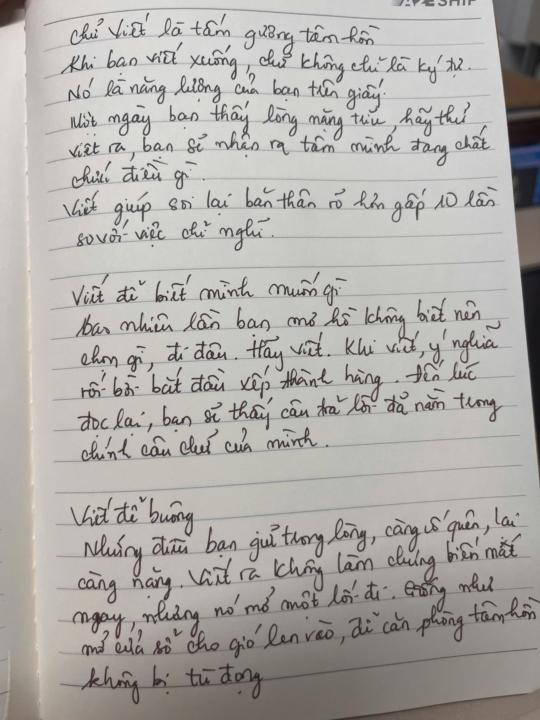 SHIP
chữ viết là tấm gương tâm hồn
Khi bạn viết xuống, chữ không chỉ là ký tự.
Nó là năng lượng của bạn trên giấy.
Một ngày bạn thấy lòng nặng trĩu, hãy thử
viết ra, bạn sẽ nhận ra tâm mình đang chất
chứa điều gì.
Viết giúp soi lại bản thân rõ hơn gấp 10 lần
so với việc chỉ nghĩ.
Viết để biết mình muốn gì
bao nhiên lần bạn mơ hồ không biết nên
chọn gì, đi đâu. Hãy viết. Khi viết, ý nghĩa
rối bời bắt đầu xếp thành hàng. đến lúc
đọc lại, bạn sẽ thấy câu trả lời đã nằm trong
chính câu chữ của mình.
Viết để buông
Những điều bạn giữ trong lòng, càng cố quên, lại
càng nặng. Viết ra không làm chúng biến mất
ngay, nhưng nó mở một lối đi. Giống như
mở cửa sổ cho gió len vào, để căn phòng tâm hồn
không bị tù đọng